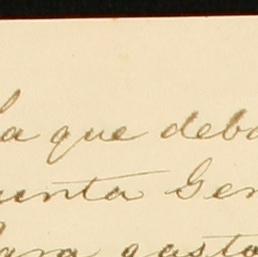 la que deba
uenta Gen
para gasto